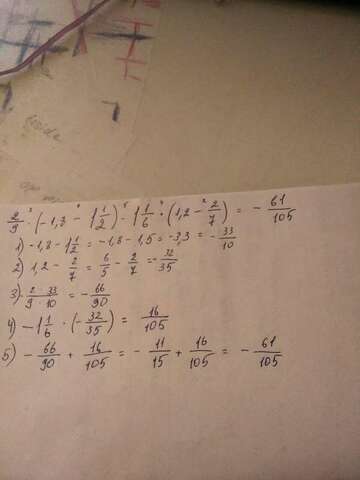 2/9 · (-1,8 - 1 1/2) - 1 1/6 · (1,2 - 2/7) = - 61/105
1) -1,8 - 1 1/2 = -1,8 - 1,5 = -3,3 = - 33/10
2) 1,2 - 2/7 = 6/5 - 2/7 = - 32/35
3) - 2 · 33/9 · 10 = - 66/90
4) - 1 1/6 · (- 32/35) = 16/105
5) - 66/90 + 16/105 = - 11/15 + 16/105 = - 61/105